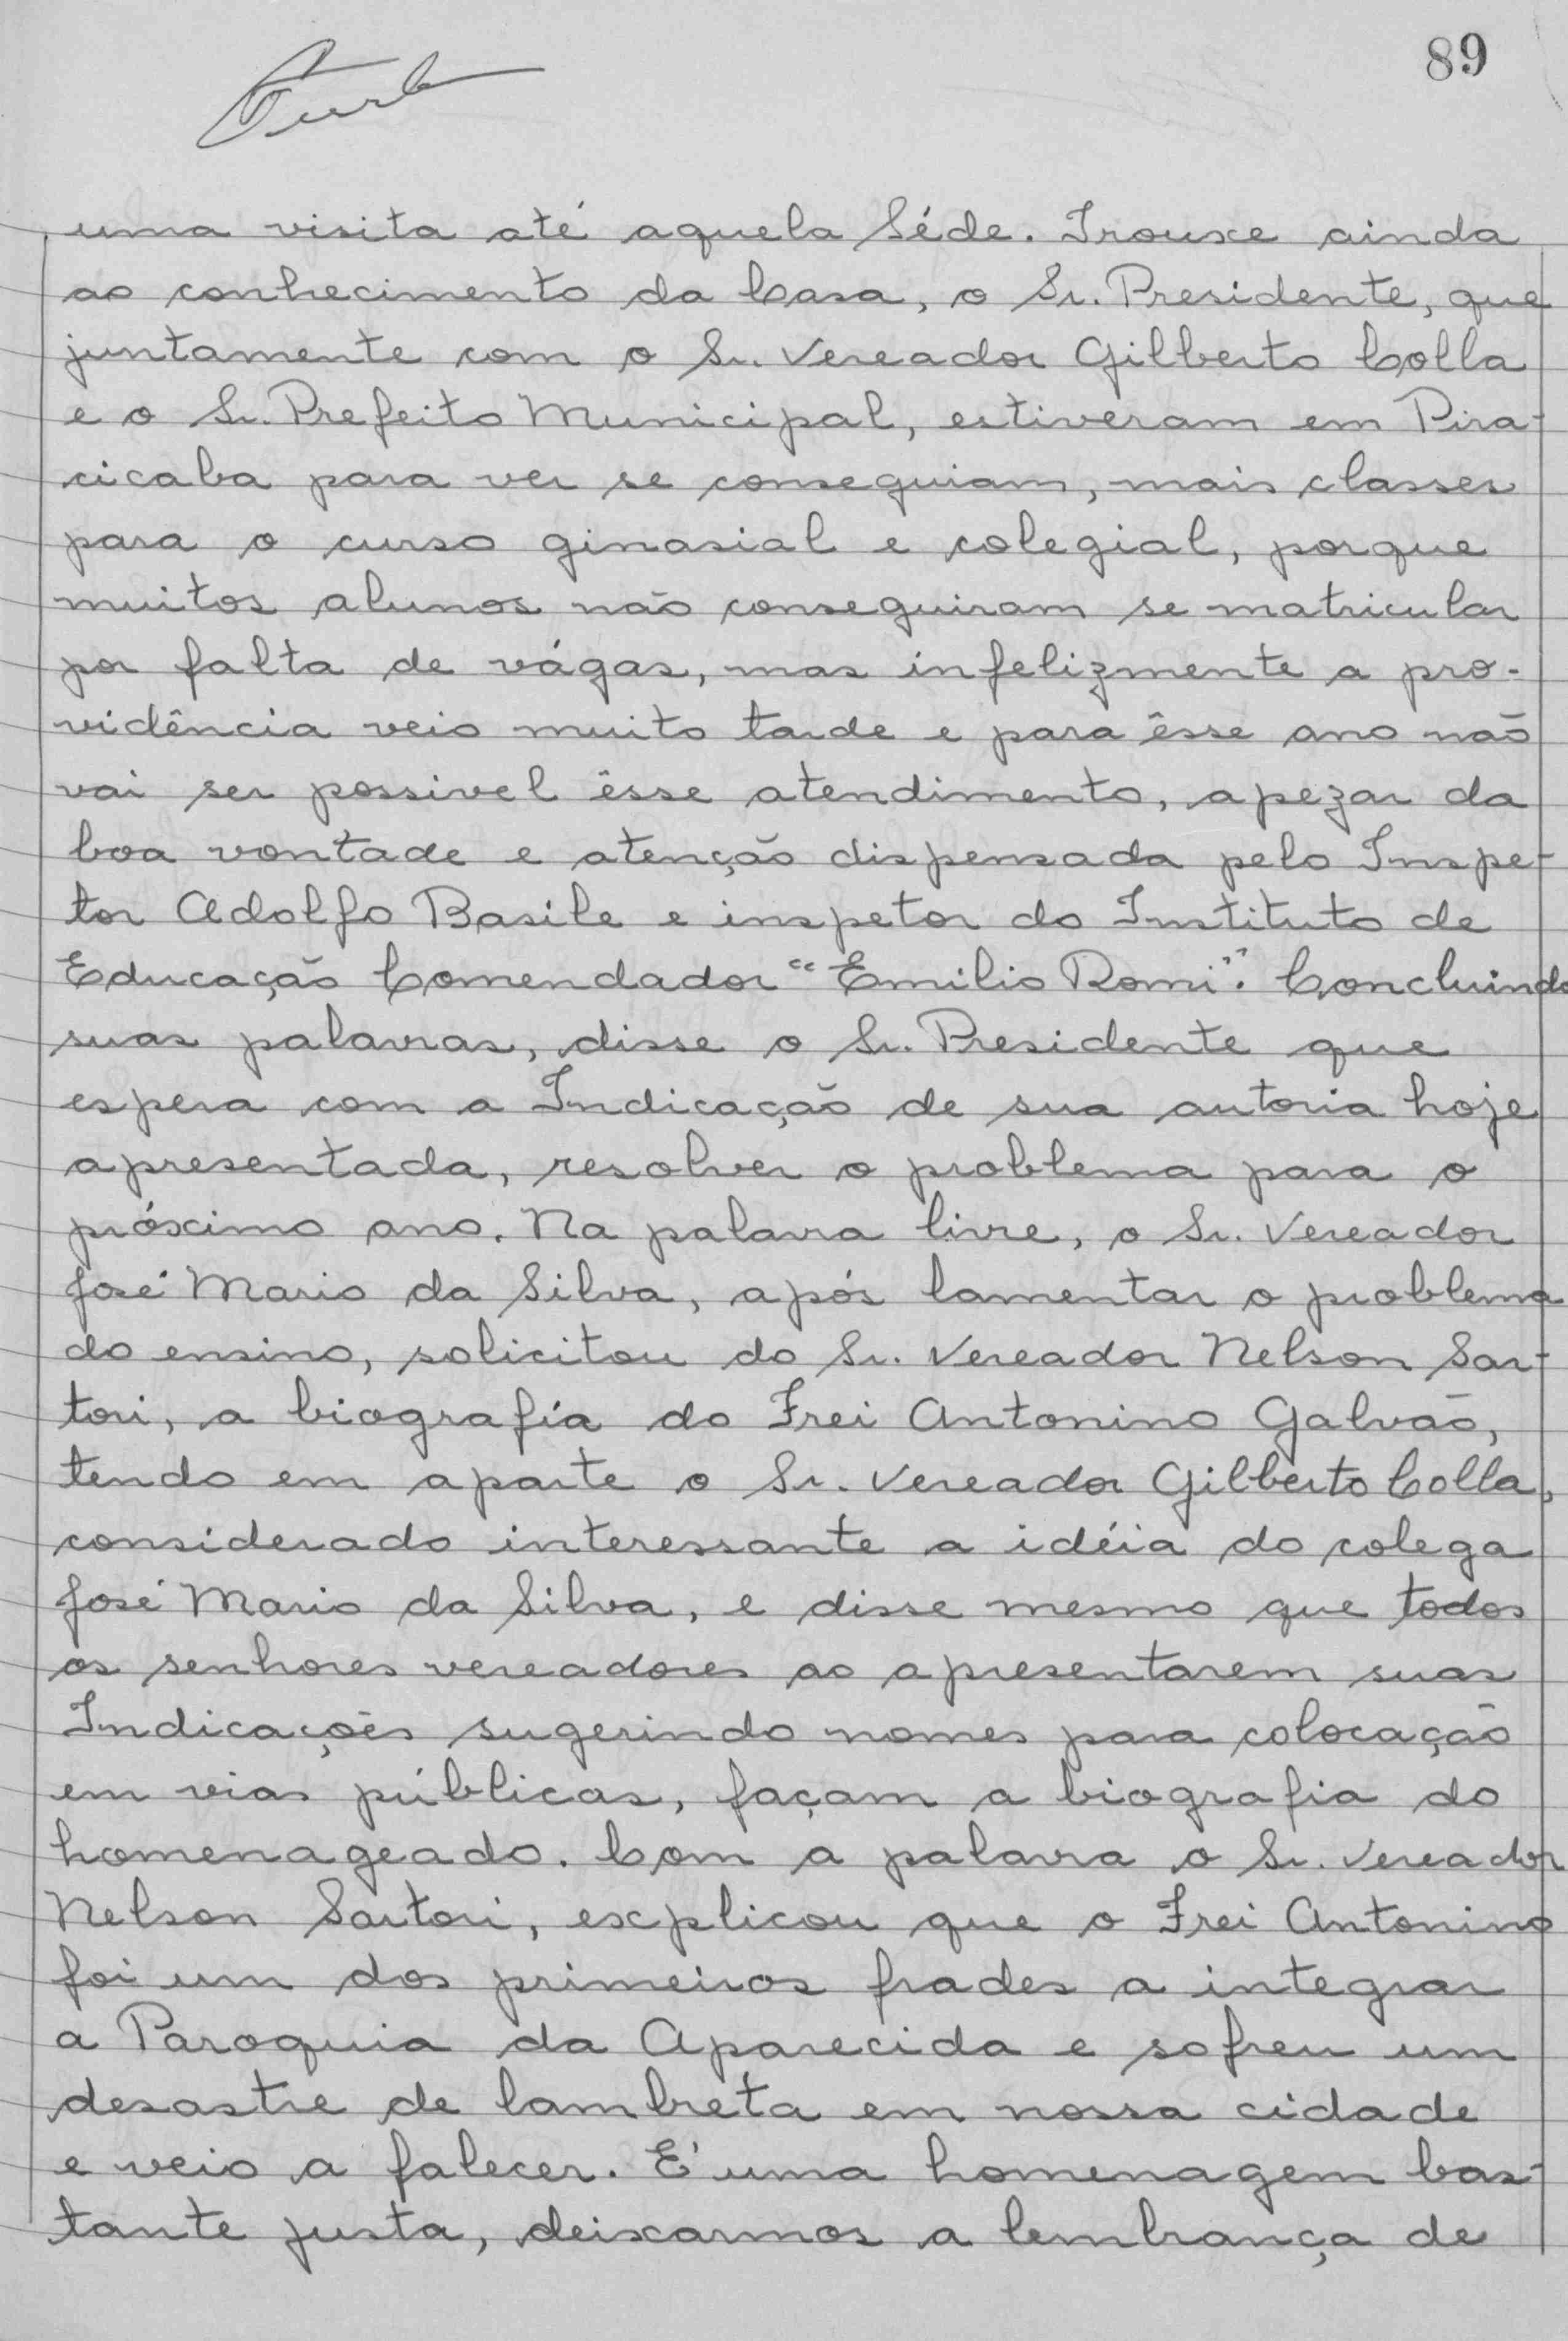 89
uma visita até aquela Séde. Trouxe ainda
ao conhecimento da Casa, o Sr. Presidente, que
juntamente com o Sr. Vereador Gilberto Colla
e o Sr. Prefeito Municipal, estiveram em Pira-
cicaba para ver se conseguiam, mais classes
para o curso ginasial e colegial, porque
muitos alunos não conseguiram se matricular
por falta de vágas, mas infelizmente a pro-
vidência veio muito tarde e para êsse ano não
vai ser possivel êsse atendimento, apezar da
boa vontade e atenção dispensada pelo Inspe-
tor Adolfo Basile e inspetor do Instituto de
Educação Comendador "Emilio Romi". Concluindo
suas palavras, disse o Sr. Presidente que
espera com a Indicação de sua autoria hoje
apresentada, resolver o problema para o
próximo ano. Na palavra livre, o Sr. Vereador
José Mario da Silva, após lamentar o problema
do ensino, solicitou do Sr. Vereador Nelson Sar-
tori, a biografía do Frei Antonino Galvão,
tendo em aparte o Sr. Vereador Gilberto Colla,
considerado interessante a idéia do colega
José Mario da Silva, e disse mesmo que todos
os senhores vereadores ao apresentarem suas
Indicações sugerindo nomes para colocação
em vias públicas, façam a biografia do
homenageado. Com a palavra o Sr. Vereador
Nelson Sartori, explicou que o Frei Antonino
foi um dos primeiros frades a integrar
a Paroquia da Aparecida e sofreu um
desastre de lambreta em nossa cidade
e veio a falecer. É uma homenagem bas-
tante justa, deixarmos a lembrança de